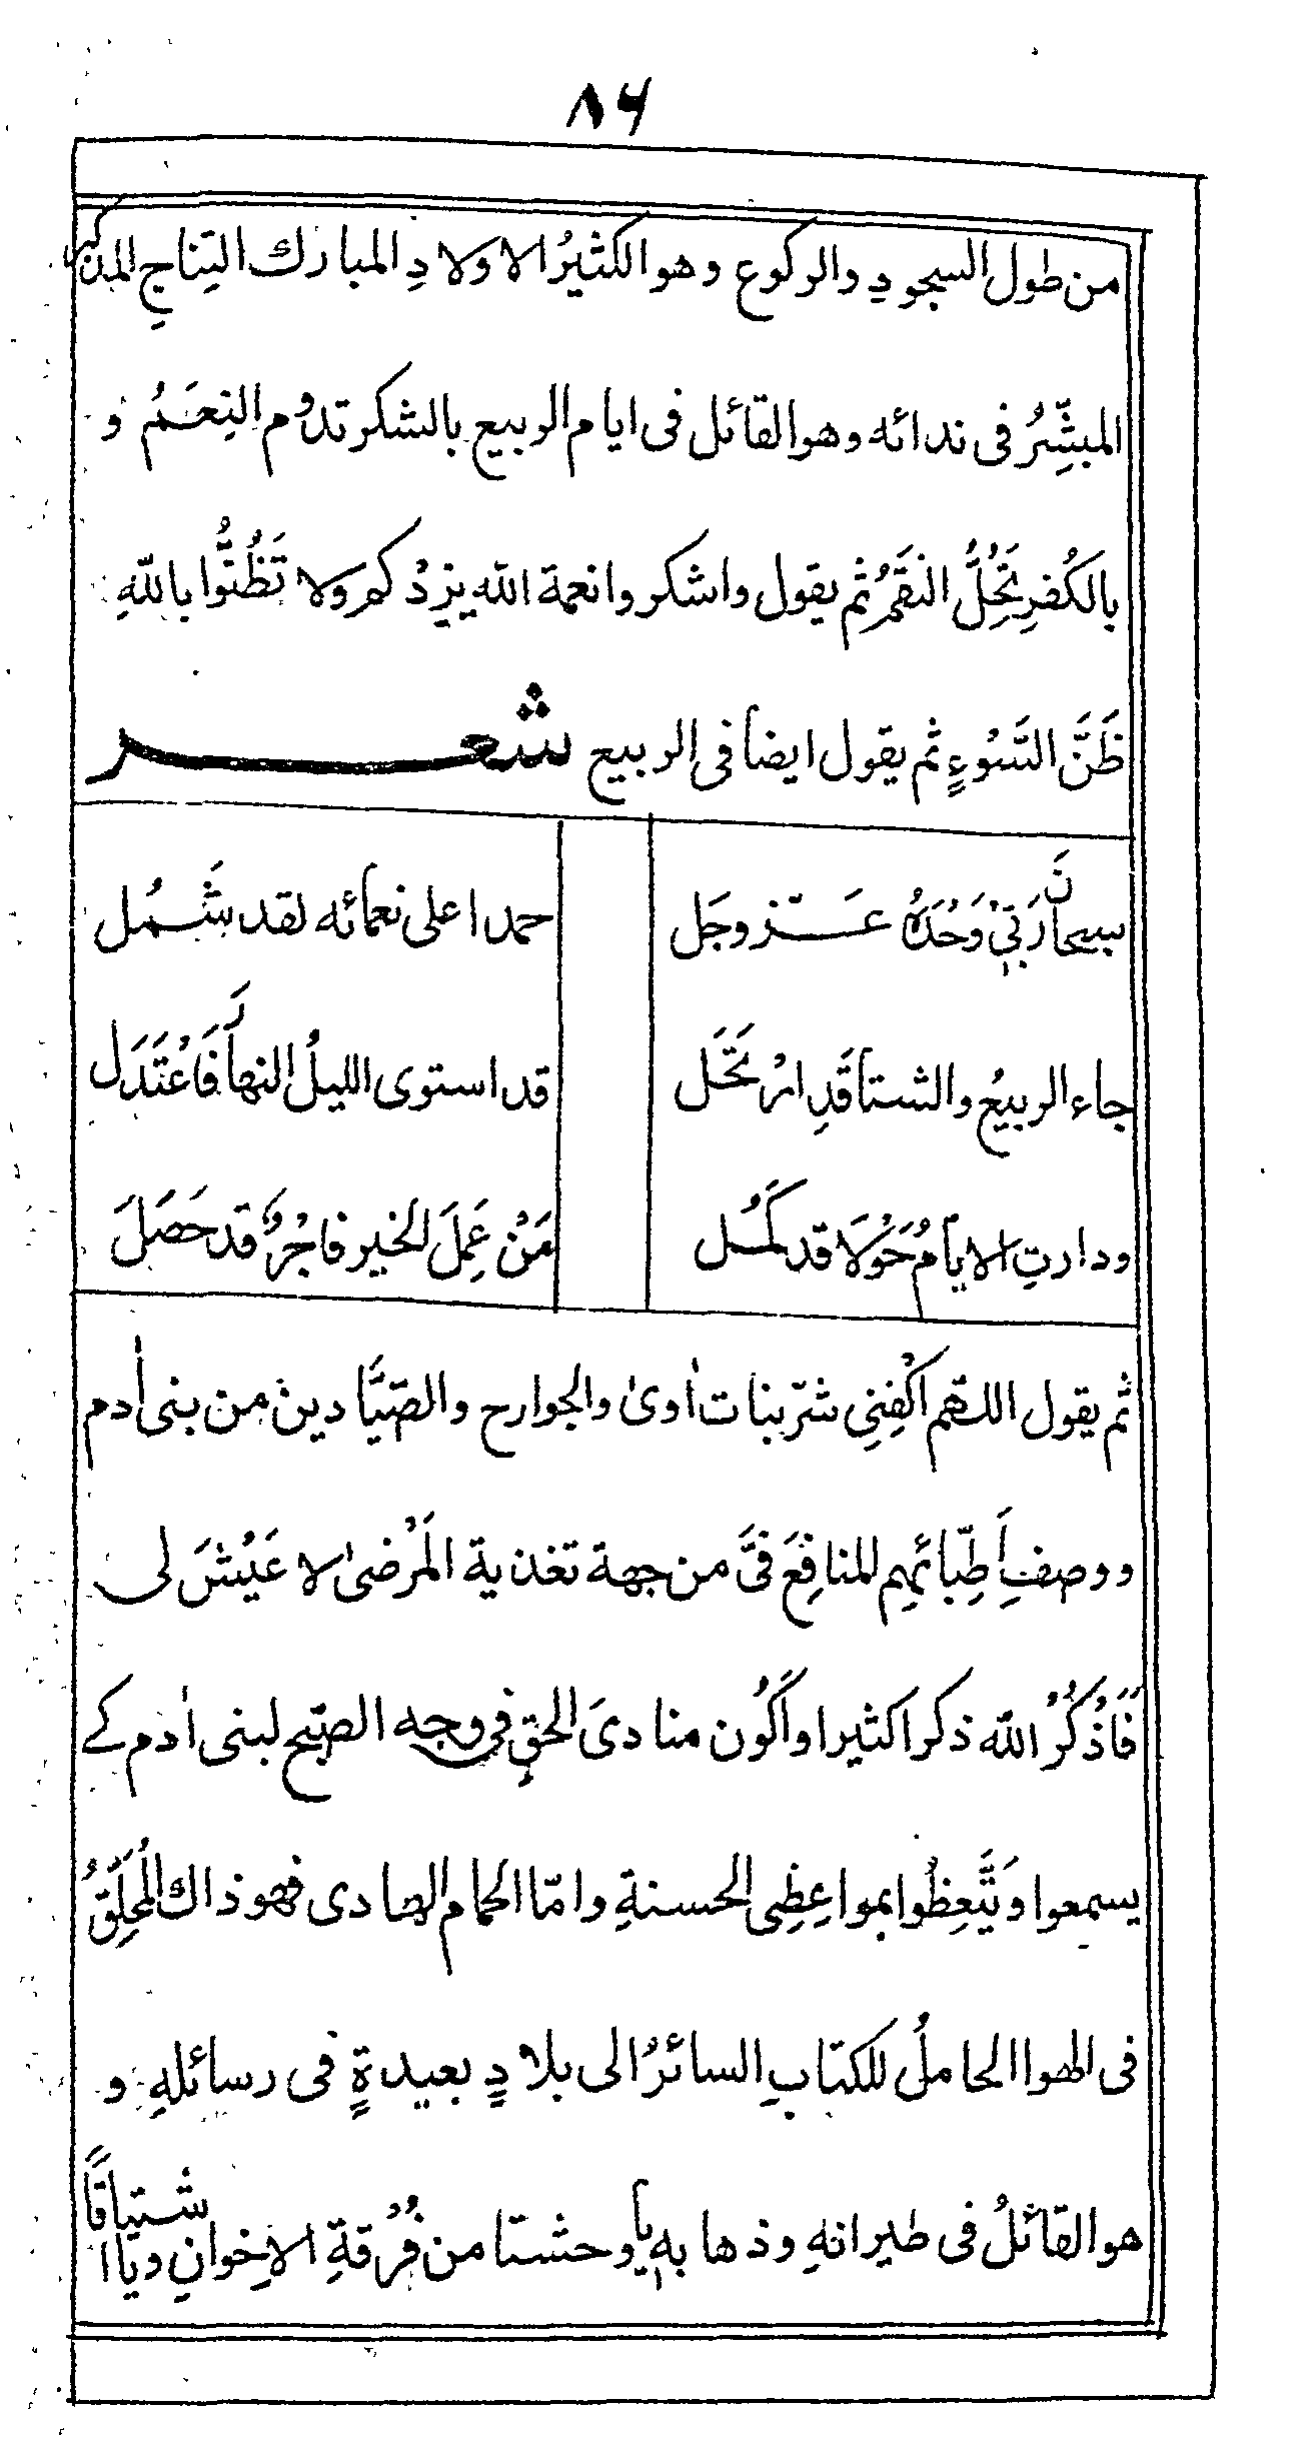 ٨٦
من طول السجودِ والركوع وهو الكثيرُ الاولادِ المبارك النِتاجِ المذكر
المبشِّرُ فى ندائه وهو القائل فى ايام الربيع بالشكر تدوم النِعَمُ و
بالكُفرِ تَحُلُّ النقَمُ ثم يقول واشكروا نعمة الله يزِدْكم ولا تَظُنُّوا باللهِ
ظَنَّ السَّوْءِ ثم يقول ايضا فى الربيع شعر
سبحانَ رَبّىْ وَحْدَهُ عَزّ وجَل حمدا على نعمائه لقد شَمُل
جاء الربيعُ والشتا قَدِ ارْتَحَل قد استوى الليلُ النهارَ فَاعْتَدَل
ودارتِ الايامُ حَوْلَا قد كَمُل مَنْ عَمِلَ الخير فاجْرُهٗ قد حَصَلَ
ثم يقول اللهّم اكْفِنِى شرّ بنات اٰوىٰ والجوارح والصّيَّادين من بنى اٰدم
ووصفِ اَطِبّائهِم المنافِعَ فىَّ من جهة تغذية المَرْضىٰ لا عَيْشَ لى
فَاَذْكُرُ الله ذكرا كثيرا واَكُون منادىَ الحقِ فى وجه الصبّح لبنى اٰدم كے
يسمعوا وَيَتَّعِظُوا بمواعِظِى الحسنةِ وامّا الحمام الهادى فهو ذاك المُحَلِّقُ
فى الهوا الحاملُ للكتابِ السائرُ الى بلادٍ بعيدةٍ فى رسائلهِ و
هو القائلُ فى طيرانهِ وذهابهٖ يا وحشتا من فُرْقةِ الاِخوانِ ويا اشتياقًا